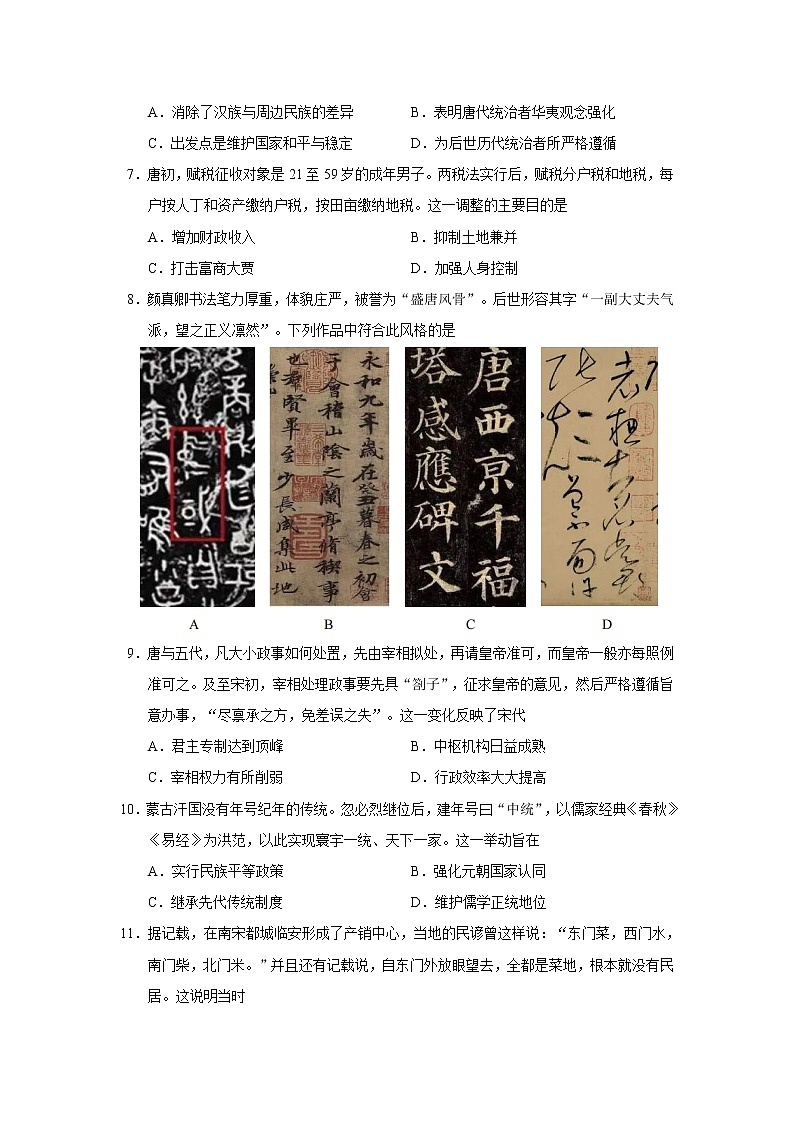 A．消除了汉族与周边民族的差异 B．表明唐代统治者华夷观念强化
C．出发点是维护国家和平与稳定 D．为后世历代统治者所严格遵循
7．唐初，赋税征收对象是 21 至 59 岁的成年男子。两税法实行后，赋税分户税和地税，每
户按人丁和资产缴纳户税，按田亩缴纳地税。这一调整的主要目的是
A．增加财政收入 B．抑制土地兼并
C．打击富商大贾 D．加强人身控制
8．颜真卿书法笔力厚重，体貌庄严，被誉为“盛唐风骨”。后世形容其字“一副大丈夫气
派，望之正义凛然”。下列作品中符合此风格的是
永和九年歲在癸丑暮春之初會
于會稽山陰之蘭亭脩稧事
也羣賢畢至少長咸集此地
唐西京千福
塔感應碑文
A B C D
9．唐与五代，凡大小政事如何处置，先由宰相拟处，再请皇帝准可，而皇帝一般亦每照例
准可之。及至宋初，宰相处理政事要先具“劄子”，征求皇帝的意见，然后严格遵循旨
意办事，“尽禀承之方，免差误之失”。这一变化反映了宋代
A．君主专制达到顶峰 B．中枢机构日益成熟
C．宰相权力有所削弱 D．行政效率大大提高
10．蒙古汗国没有年号纪年的传统。忽必烈继位后，建年号曰“中统”，以儒家经典《春秋》
《易经》为洪范，以此实现寰宇一统、天下一家。这一举动旨在
A．实行民族平等政策 B．强化元朝国家认同
C．继承先代传统制度 D．维护儒学正统地位
11．据记载，在南宋都城临安形成了产销中心，当地的民谚曾这样说：“东门菜，西门水，
南门柴，北门米。”并且还有记载说，自东门外放眼望去，全都是菜地，根本就没有民
居。这说明当时